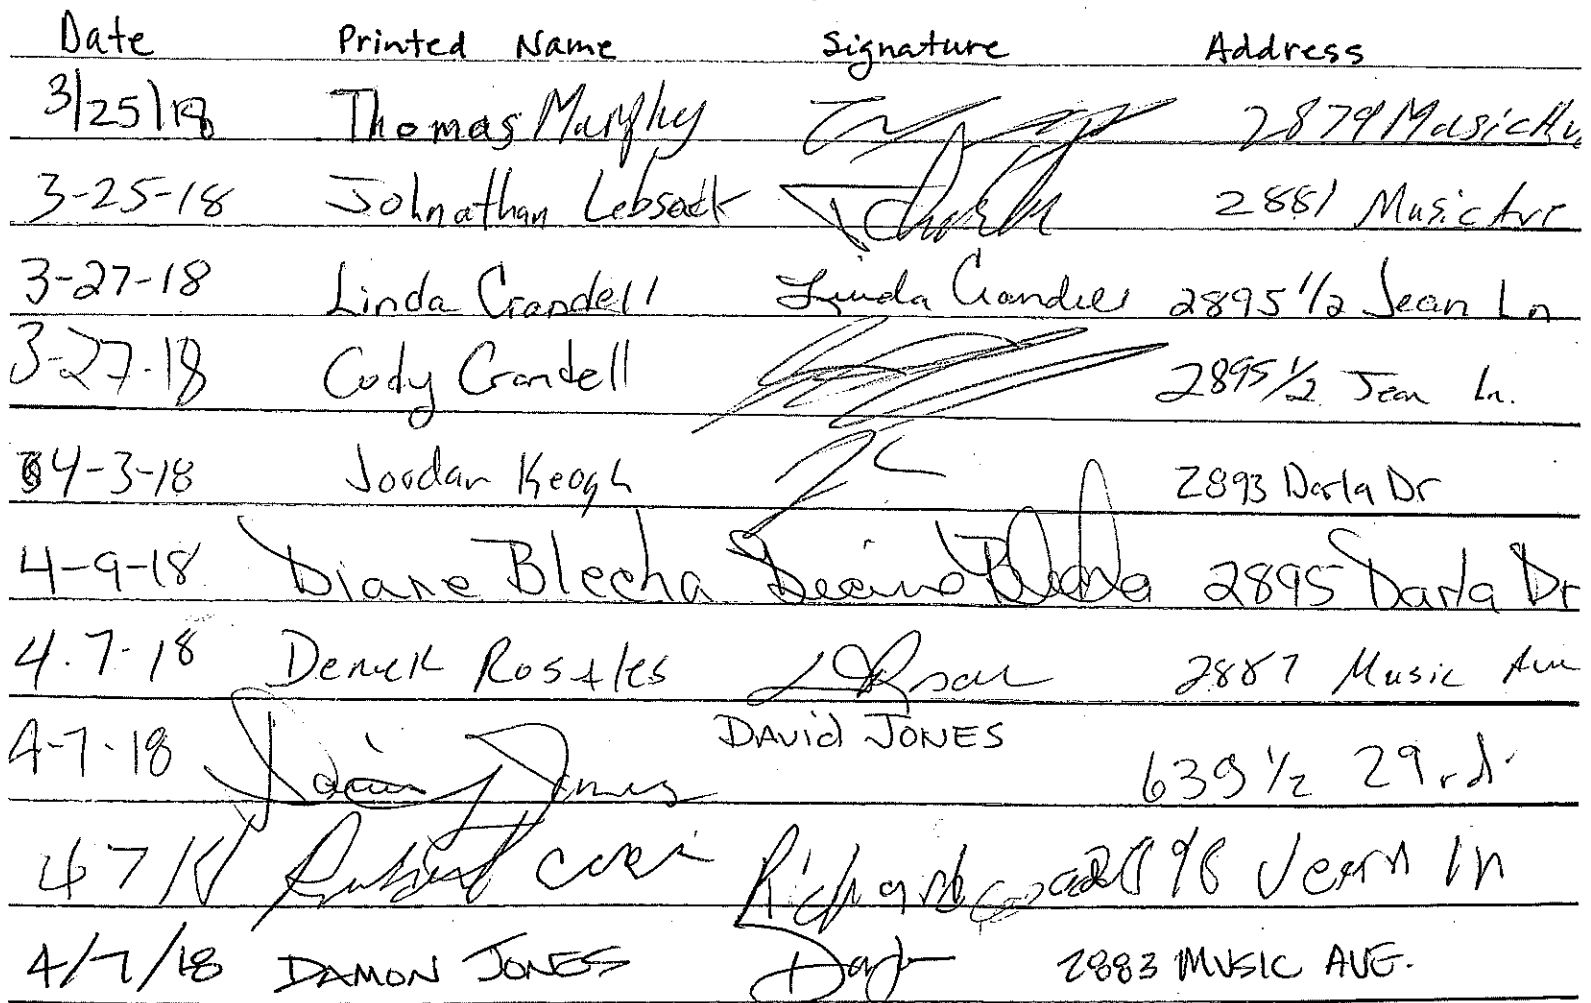 Date Printed Name Signature Address
3/25/18 Thomas Murphy 2879 Music Ave
3-25-18 Johnathan Lebsack 2881 Music Ave
3-27-18 Linda Crandell Linda Crandell 2895 1/2 Jean Ln
3-27-18 Cody Crandell 2895 1/2 Jean Ln.
4-3-18 Jordan Keogh 2893 Darla Dr
4-9-18 Diane Blecha Diane Blecha 2895 Darla Dr
4.7-18 Derrek Rosales 2887 Music Ave
4-7-18 David Jones DAVId JONES 639 1/2 29 rd.
4 7 18 Richard 2898 Jean ln
4/7/18 DAMON JONES 2883 MUSIC AVE.